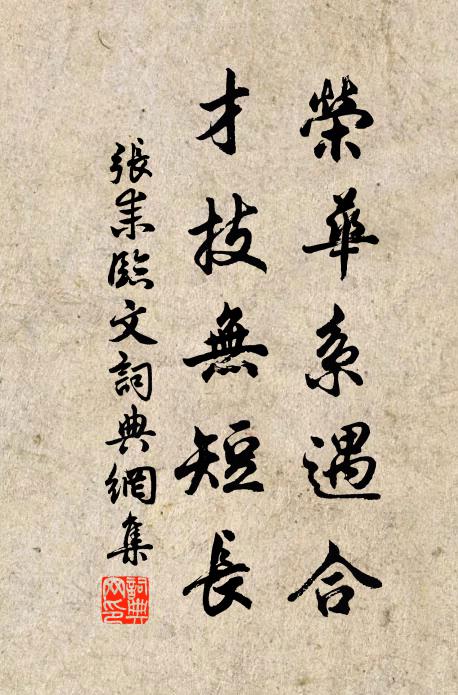 榮華系遇合
才技無短長
張耒臨文詞典網集
詞典